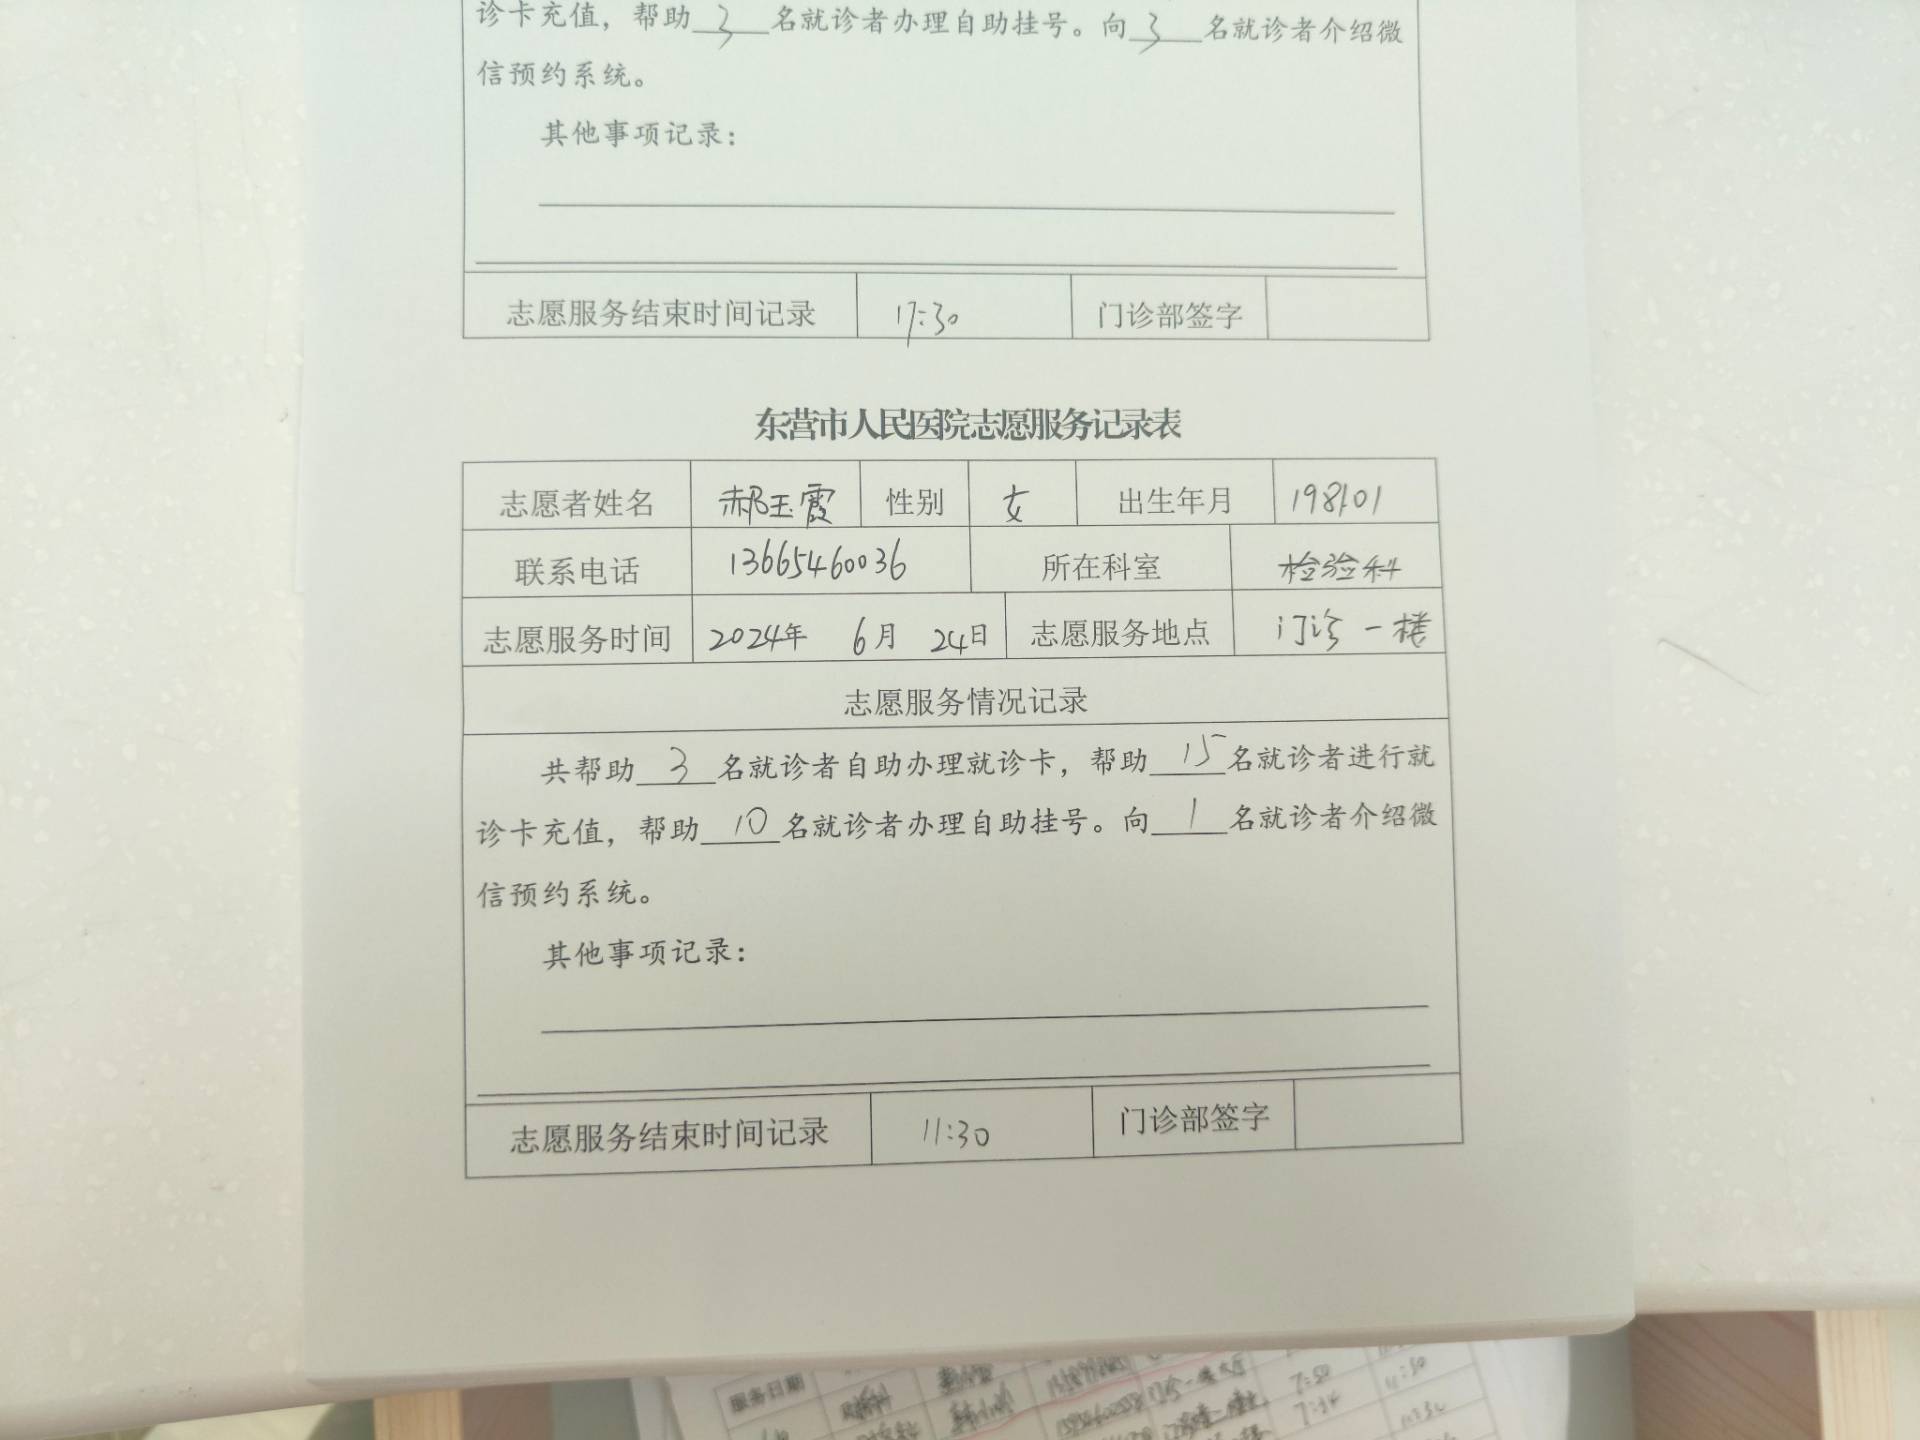 诊卡充值，帮助 3 名就诊者办理自助挂号。向 3 名就诊者介绍微
信预约系统。
其他事项记录：
志愿服务结束时间记录 17:30 门诊部签字
东营市人民医院志愿服务记录表
志愿者姓名 郝玉霞 性别 女 出生年月 198101
联系电话 13665460036 所在科室 检验科
志愿服务时间 2024年 6月 24日 志愿服务地点 门诊一楼
志愿服务情况记录
共帮助 3 名就诊者自助办理就诊卡，帮助 15 名就诊者进行就
诊卡充值，帮助 10 名就诊者办理自助挂号。向 1 名就诊者介绍微
信预约系统。
其他事项记录：
志愿服务结束时间记录 11:30 门诊部签字
服务日期
7:50 11:50